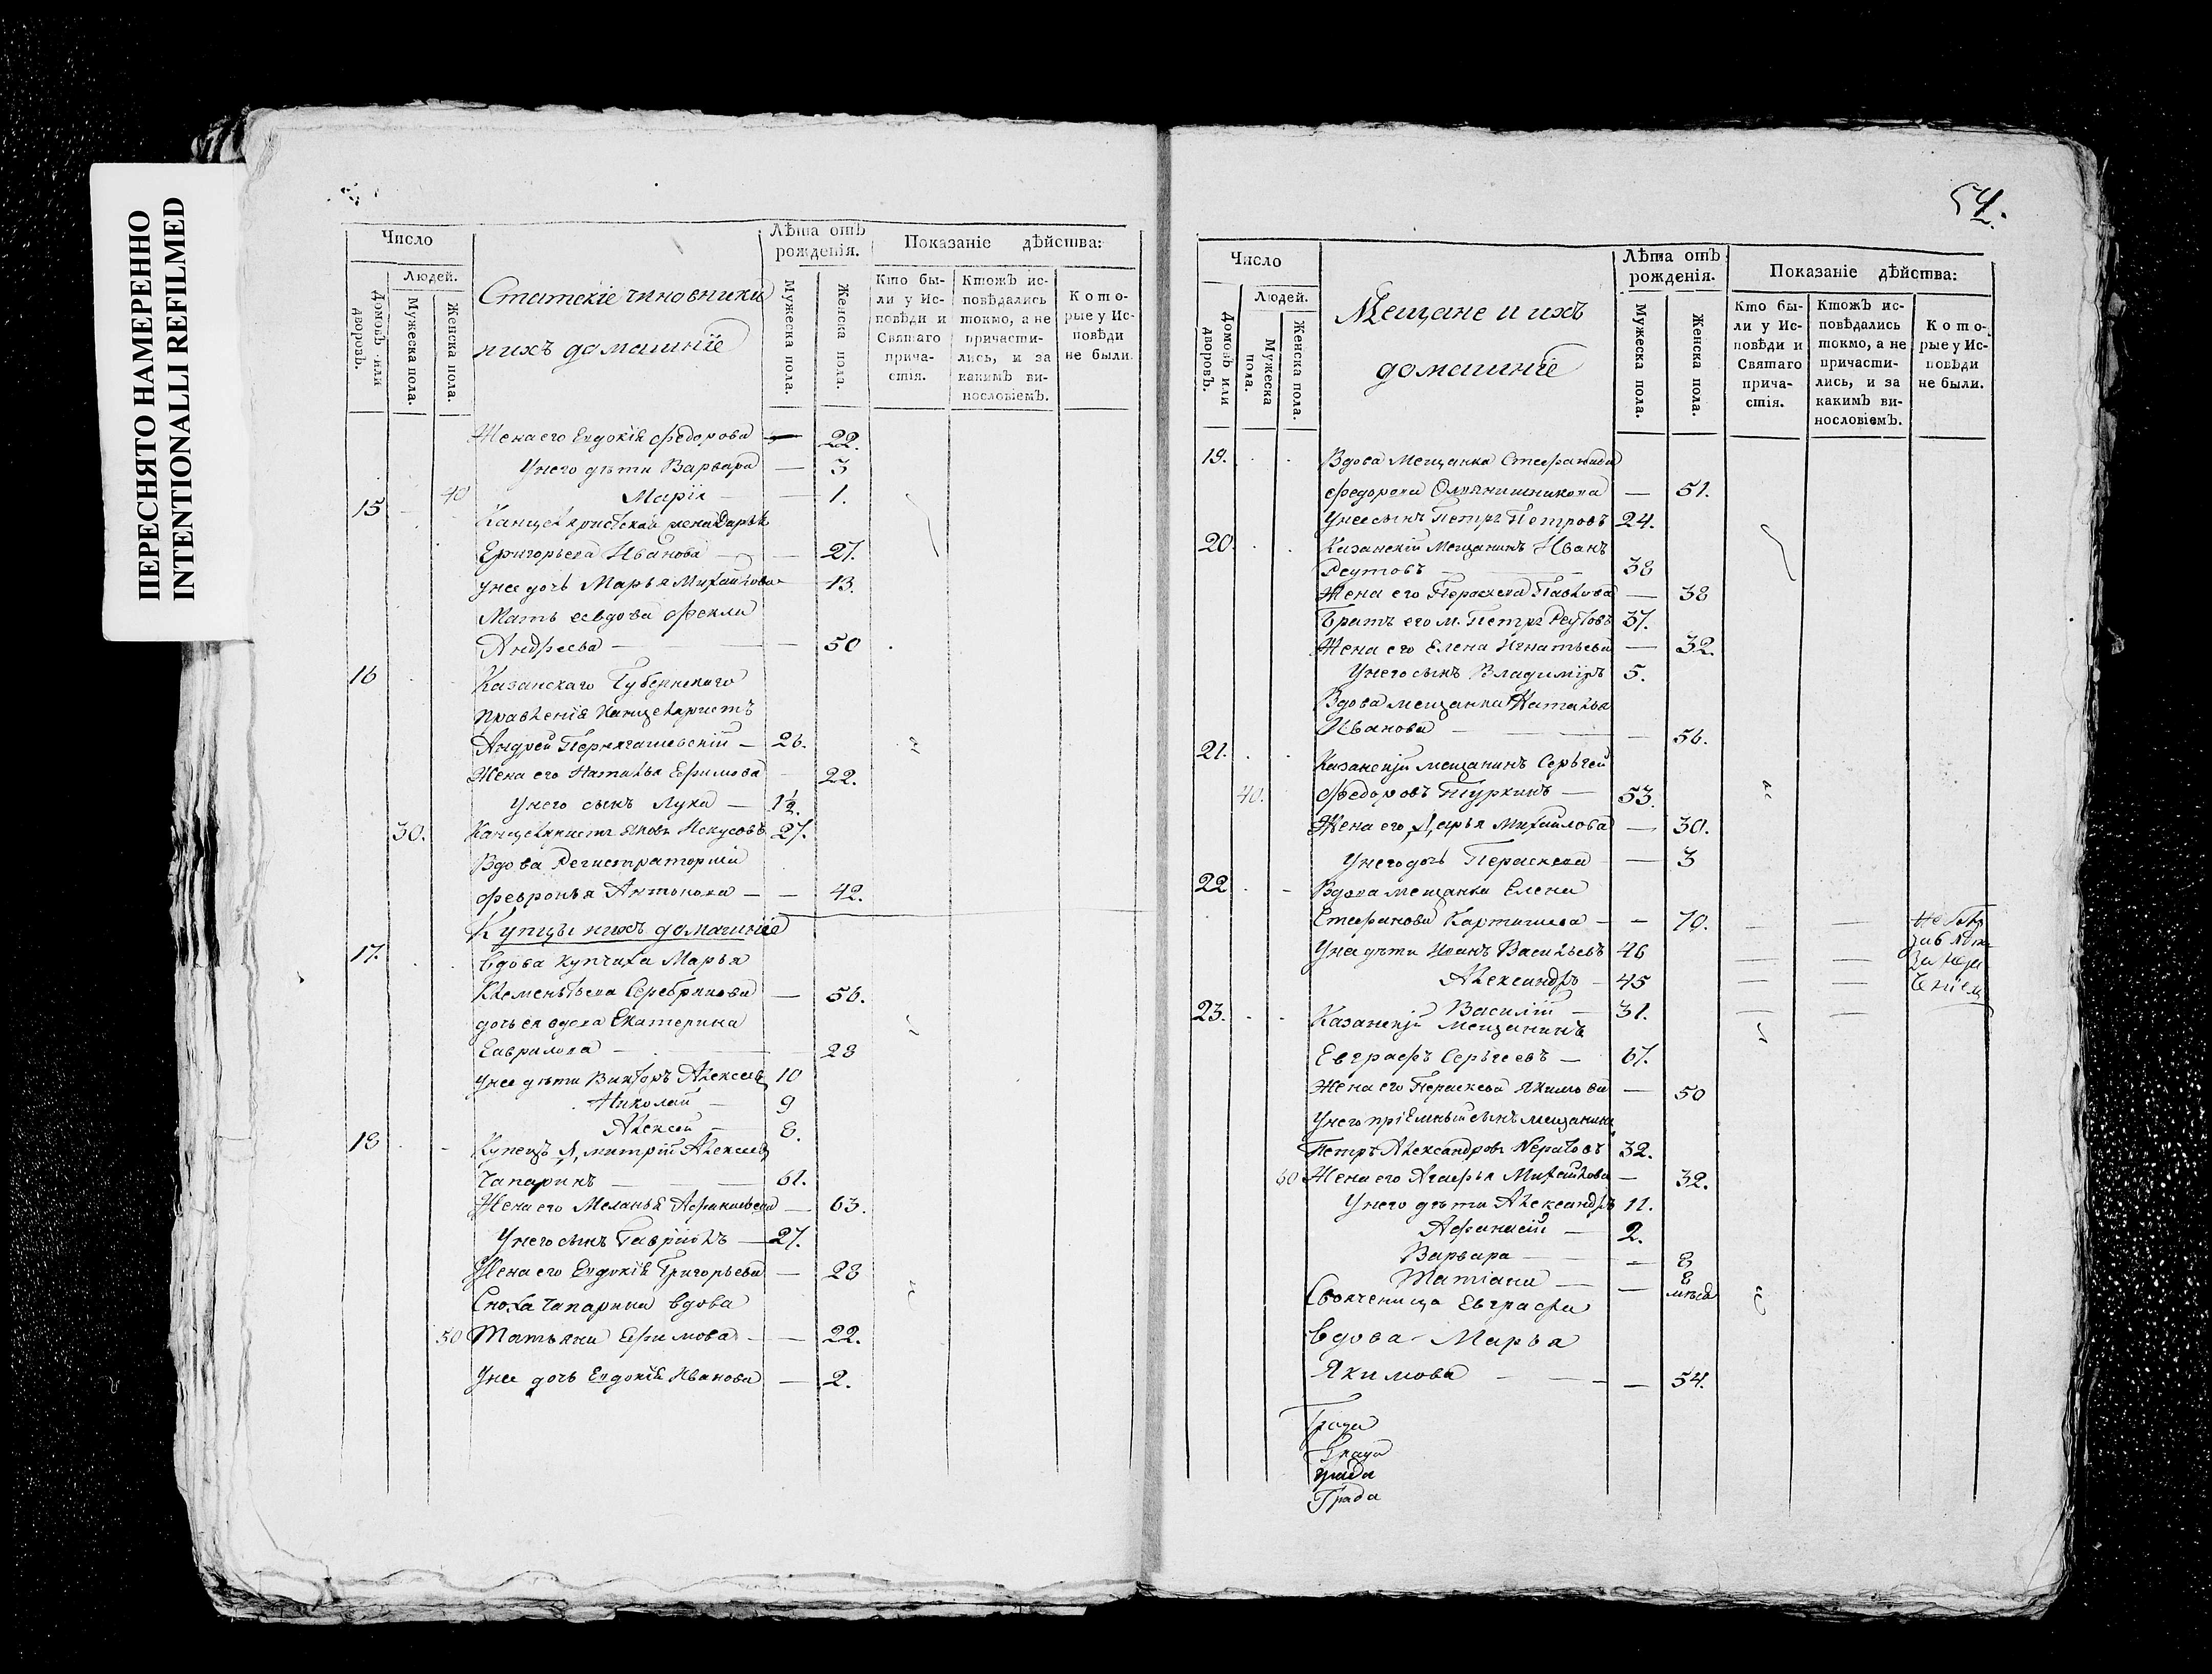 ПЕРЕСНЯТО НАМЕРЕННО
INTENTIONALLI REFILMED
Число
Людей.
Домовъ или дворовъ.
Мужеска пола.
Женска пола.
Статскіе чиновники
и ихъ домашніе
Лѣта отъ рожденія.
Мужеска пола.
Женска пола.
Показаніе дѣйства:
Кто были у Исповѣди и Святаго причастія.
Ктожъ исповѣдались токмо, а не причастились, и за какимъ винословіемъ.
Которые у Исповѣди не были.
Жена его Евдокія Федорова — 22.
У него дѣти Варвара — 3
40 Марія — — 1.
15 Канцеляристская жена Дарья
Григорьева Иванова — — 27.
У нее дочь Марья Михайлова 13.
Мать ее вдова Фекла
Андреева — — 50
16 Казанскаго Губернскаго
Правленія Канцеляристъ
Андрей — 26.
Жена его Наталья Ефимова 22.
У него сынъ Лука — 1½.
30. Канцеляристъ Яковъ 27.
Вдова Регистраторша
Февронья Антонова — — 42.
Купцы и ихъ домашніе
17. Вдова купчиха Марья
Клементьева Серебрякова — 56.
дочь ея вдова Екатерина
Гаврилова — — 28
У нее дѣти Викторъ Алексеевъ 10
Николай — 9
Алексей — 8.
18 - Купецъ Дмитрій Алексеевъ
Чапаринъ — — 61.
Жена его Меланья Афанасьева — 63.
У него сынъ Гаврійлъ — 27.
Жена его Евдокія Григорьева — 28
Сноха Чапарина вдова
50 Татьяна Ефимова — — 22.
У нее дочь Евдокія Иванова — 2.
54.
Число
Людей.
Домовъ или дворовъ.
Мужеска пола.
Женска пола.
Мещане и ихъ
домашніе
Лѣта отъ рожденія.
Мужеска пола.
Женска пола.
Показаніе дѣйства:
Кто были у Исповѣди и Святаго причастія.
Ктожъ исповѣдались токмо, а не причастились, и за какимъ винословіемъ.
Которые у Исповѣди не были.
19. Вдова Мещанка Стефанида
Федорова — 51.
У нее сынъ Петръ Петровъ 24.
20. Казанскій Мещанинъ Иванъ
Реутовъ — 38
Жена его Параскева Павлова — 38
Братъ его м. Петръ Реутовъ 37.
Жена его Елена Игнатьева — 32.
У него сынъ Владимиръ 5.
Вдова мещанка Наталья
Иванова — — — 56.
21. Казанскій мещанинъ Сергѣй
40. Федоровъ Туркинъ — 53.
Жена его Дарья Михайлова — 30.
У него дочь Параскева — 3
22 - Вдова мещанка Елена
Стефанова Карташева — — 70. — —
У нея дѣти Иванъ Васильевъ 46 — —
Александръ — 45 — —
Василій — 31. — —
23. Казанскій Мещанинъ
Евграфъ Сергѣевъ — 67.
Жена его Параскева Якимова — 50
У него пріемный сынъ мещанинъ
Петръ Александровъ 32.
60 Жена его Агафья Михайлова — 32.
У него дѣти Александръ 11.
Афанасій — 2.
Варвара — — 8
Татіана — — 8 мѣсяц
Своячница Евграфа
вдова Марья
Якимова — — — 54.
Града
Града
града
Града